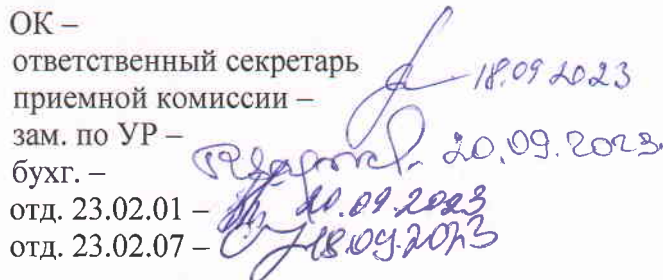 ОК –
ответственный секретарь
приемной комиссии – 18.09 2023
зам. по УР –
бухг. – 20.09.2023
отд. 23.02.01 – 20.09.2023
отд. 23.02.07 – 18.09.2023